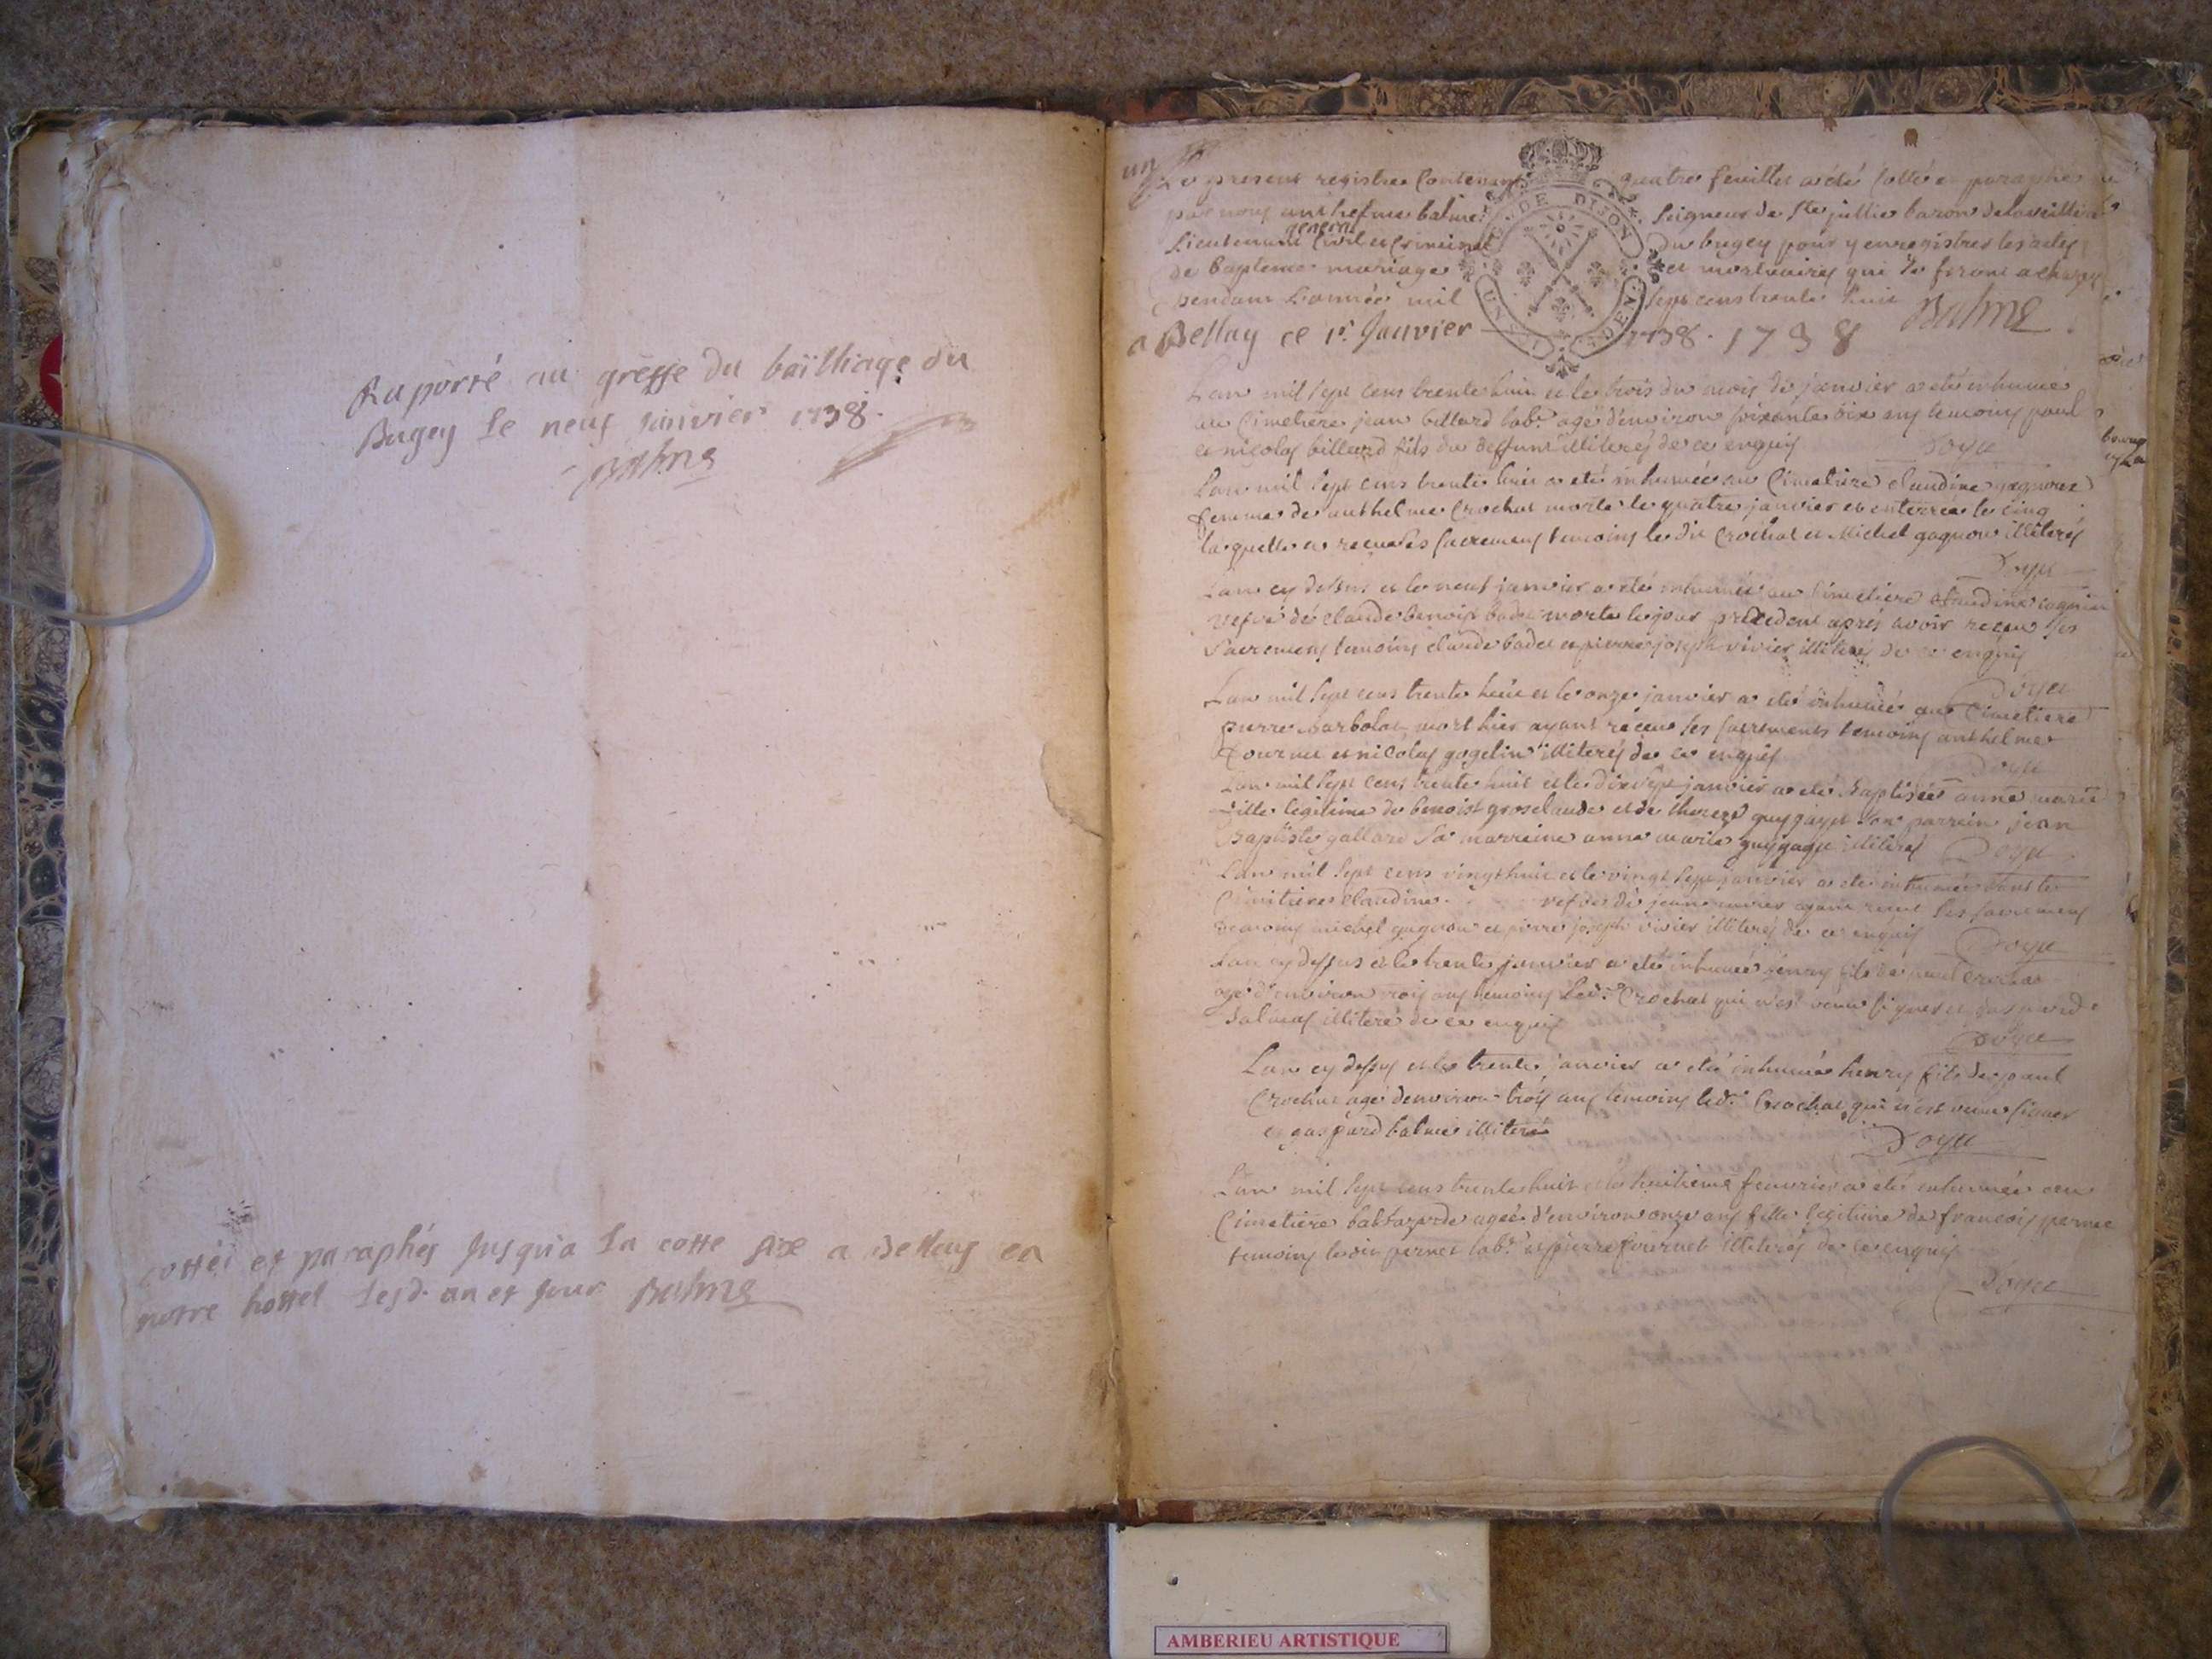 Raporté au greffe du bailliage du
Bugey le neuf janvier 1738.
Balme
cottés et paraphés jusqu'a la cotte six a Bellay en
notre hostel lesd. an et jour Balme
un
Le present registre contenant quatre feuilles a été cotté et paraphé
par nous anthelme balme seigneur de Ste jullie baron de
Lieutenant general Civil et Criminel du bugey pour y enregistrer les actes
de Bapteme mariage et mortuaires qui se feront a
pendant L'année mil sept cens trente huit Balme
a Bellay ce 1r. Janvier 1738. 1738
DE DIJON
L'an mil sept cens trente huit et le trois du mois de janvier a eté inhumé
au Cimetiere jean billard labr. agé d'environ soixante dix ans temoins paul
et nicolas billard fils du deffunt illiterés de ce enquis Doye
L'an mil sept cens trente huit a eté inhumée au Cimetiere claudine
femme de anthelme Crochat morte le quatre janvier et enterrée le cinq
laquelle a receu les sacremens temoins le dit Crochat et Michel gagnon illiterés
Doye
L'an cy dessus et le neuf janvier a eté inhumée au Cimetiere claudine
vefve de claude benoist badet morte le jour precedent aprés avoir receu les
Sacremens temoins claude badet et pierre joseph vivier illiterés de ce enquis
Doye
L'an mil sept cens trente huit et le onze janvier a eté inhumé au Cimetiere
pierre barbolat mort hier ayant receu les sacrements temoins anthelme
fournet et nicolas gogelin illiterés de ce enquis
Doye
L'an mil sept cens trente huit et le dix sept janvier a eté Baptisée anne marie
fille legitime de benoist grosclaude et de therese guygaye son parrein jean
Baptiste gallard Sa marreine anne marie guygaye illiterés Doye
L'an mil sept cens vingt huit et le vingt sept janvier a eté inhumée dans le
Cimitiere claudine vefve de jean ayant receu les sacremens
temoins michel gagnon et pierre joseph vivier illiterés de ce enquis Doye
L'an cy dessus et le trente janvier a eté inhumé henry fils de paul Crochat
agé d'environ trois ans temoins led. Crochat qui n'est venu signer et gaspard
balme illiteré de ce enquis
Doye
L'an cy dessus et le trente janvier a eté inhumé henry fils de paul
Crochat agé d'environ trois ans temoins led. Crochat qui n'est venu signer
et gaspard balme illiteré
Doye
L'an mil sept cens trente huit et le huitieme fevrier a eté inhumée au
Cimetiere baltazarde ageé d'environ onze ans fille legitime de francois pernet
temoins ledit pernet labr. et pierre fournet illiterés de ce enquis
Doye
AMBERIEU ARTISTIQUE